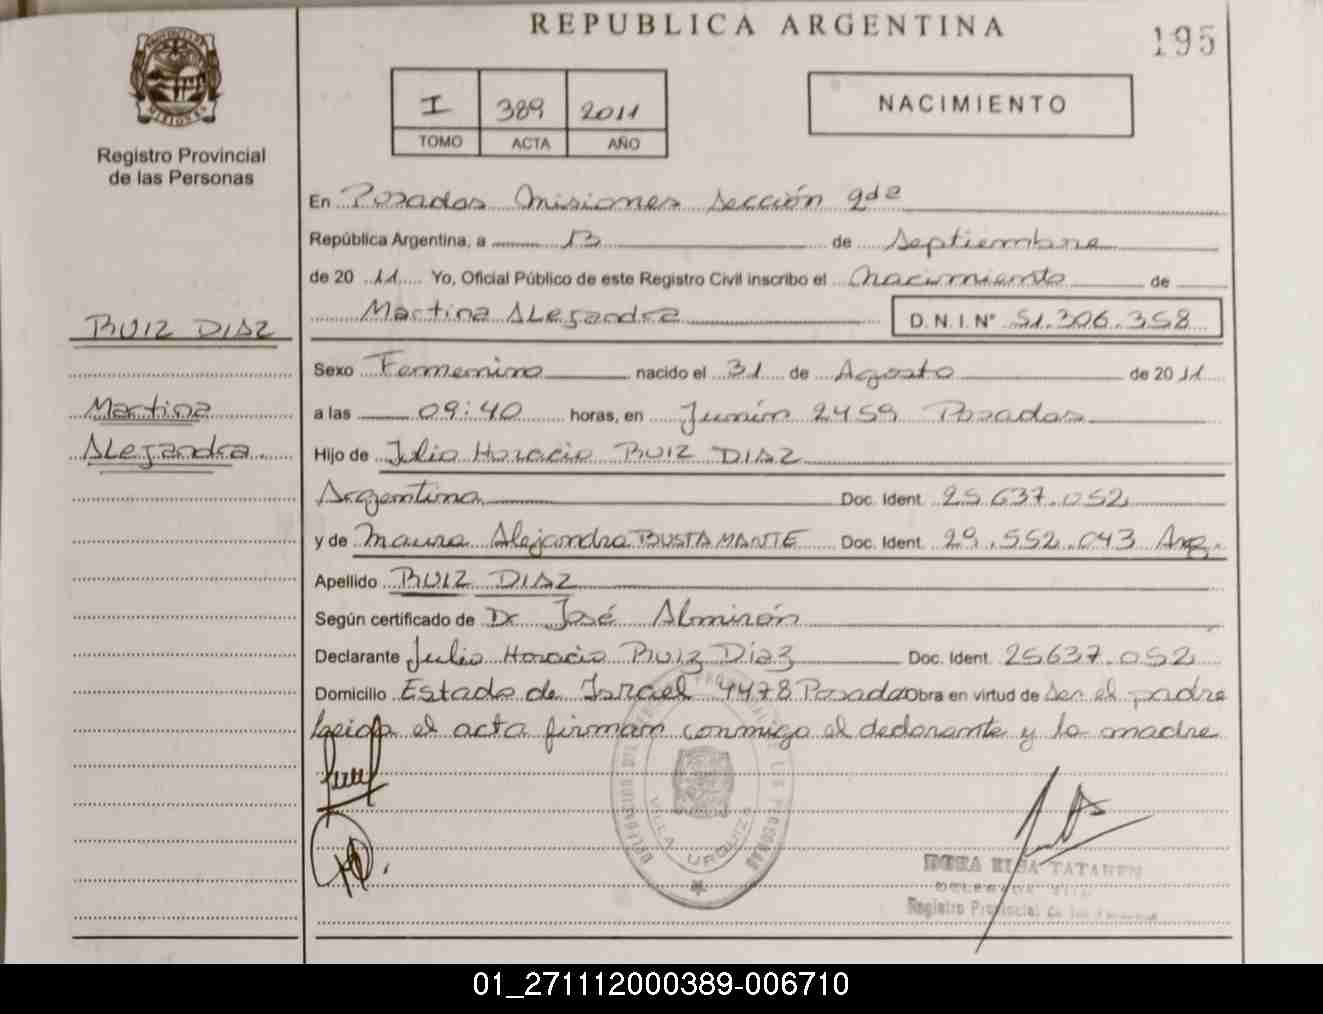 REPUBLICA ARGENTINA
195
Registro Provincial
de las Personas
I 389 2011
TOMO ACTA AÑO
NACIMIENTO
En Posadas Misiones Sección 2da
República Argentina, a 13 de Septiembre
de 20 11 Yo, Oficial Público de este Registro Civil inscribo el Nacimiento de
Martina ALejandra D.N.I.N° 51.306.358
RUIZ DIAZ
Martina
ALejandra
Sexo Femenino nacido el 31 de Agosto de 20 11
a las 09:40 horas, en Junín 2459 Posadas
Hijo de Julio Horacio RUIZ DIAZ
Argentina Doc. Ident. 25.637.052
y de Maura Alejandra BUSTAMANTE Doc. Ident. 29.552.043 Arg.
Apellido RUIZ DIAZ
Según certificado de Dr. José Almirón
Declarante Julio Horacio Ruiz Diaz Doc. Ident. 25637.052
Domicilio Estado de Israel 4478 Posadas Obra en virtud de Ser el padre
leida el acta firman conmigo el declarante y la madre
VILLA URQUIZA
Registro Provincial de las Personas
01_271112000389-006710